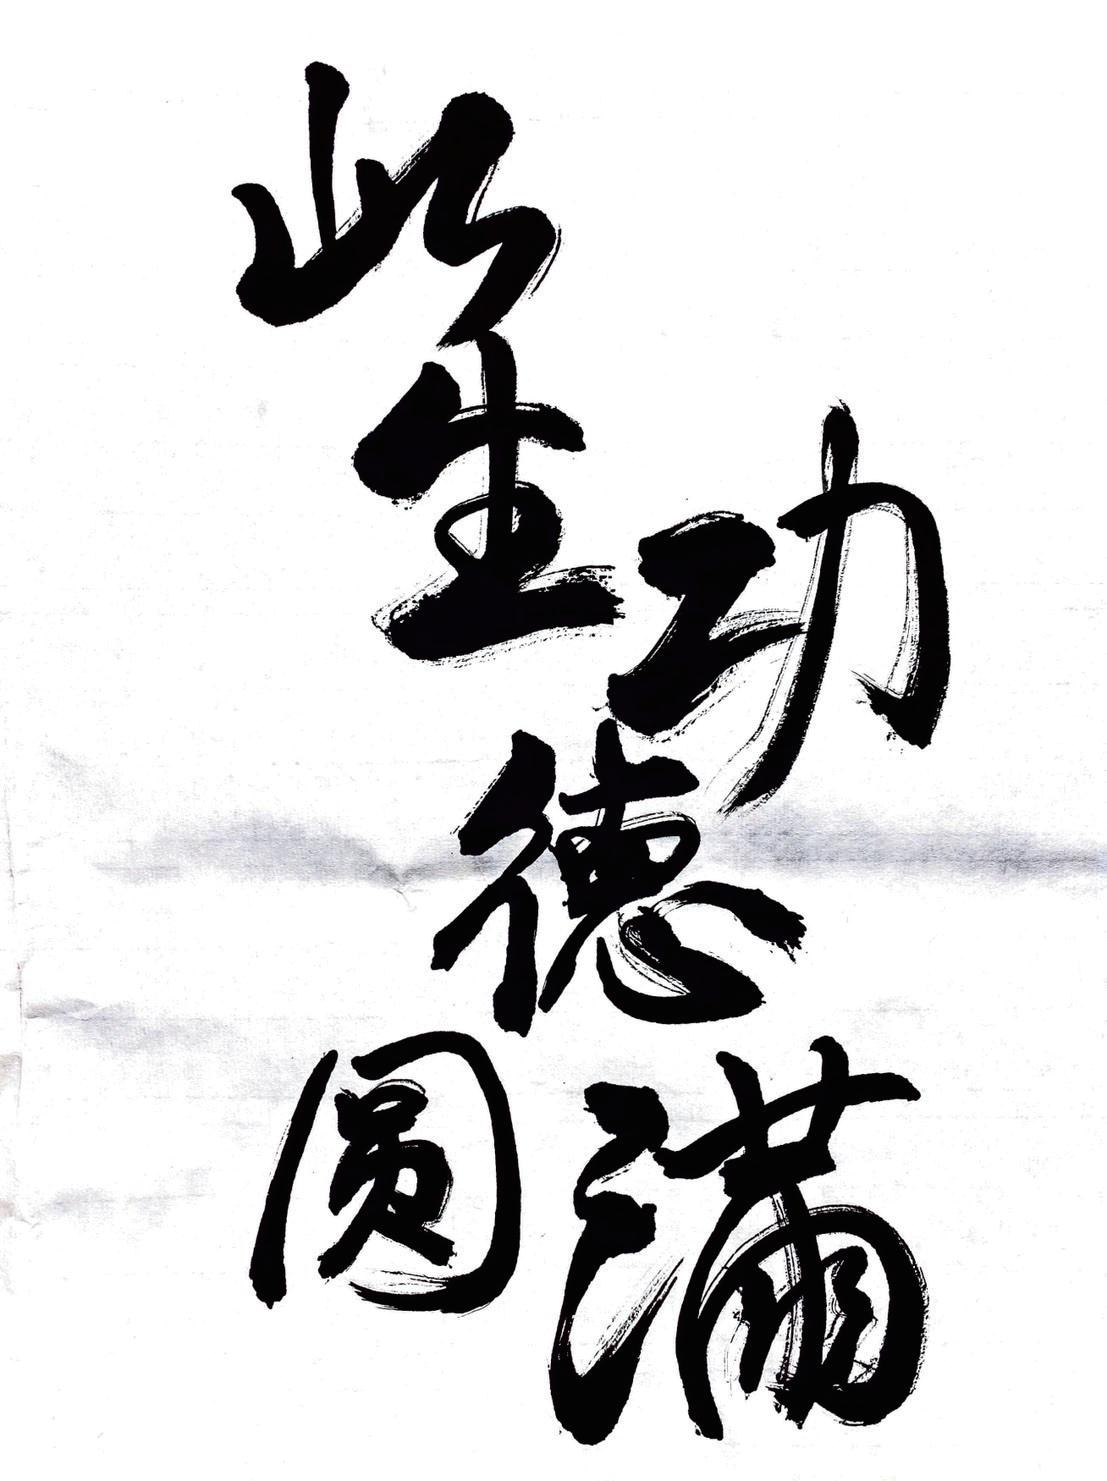 此生
功德
圆滿